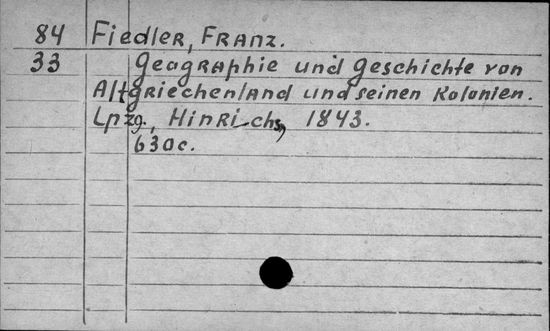 84 Fiedler, Franz.
33 Geographie und Geschichte von
Altgriechenland und seinen Kolonien.
Lpzg., Hinrichs, 1843.
630c.